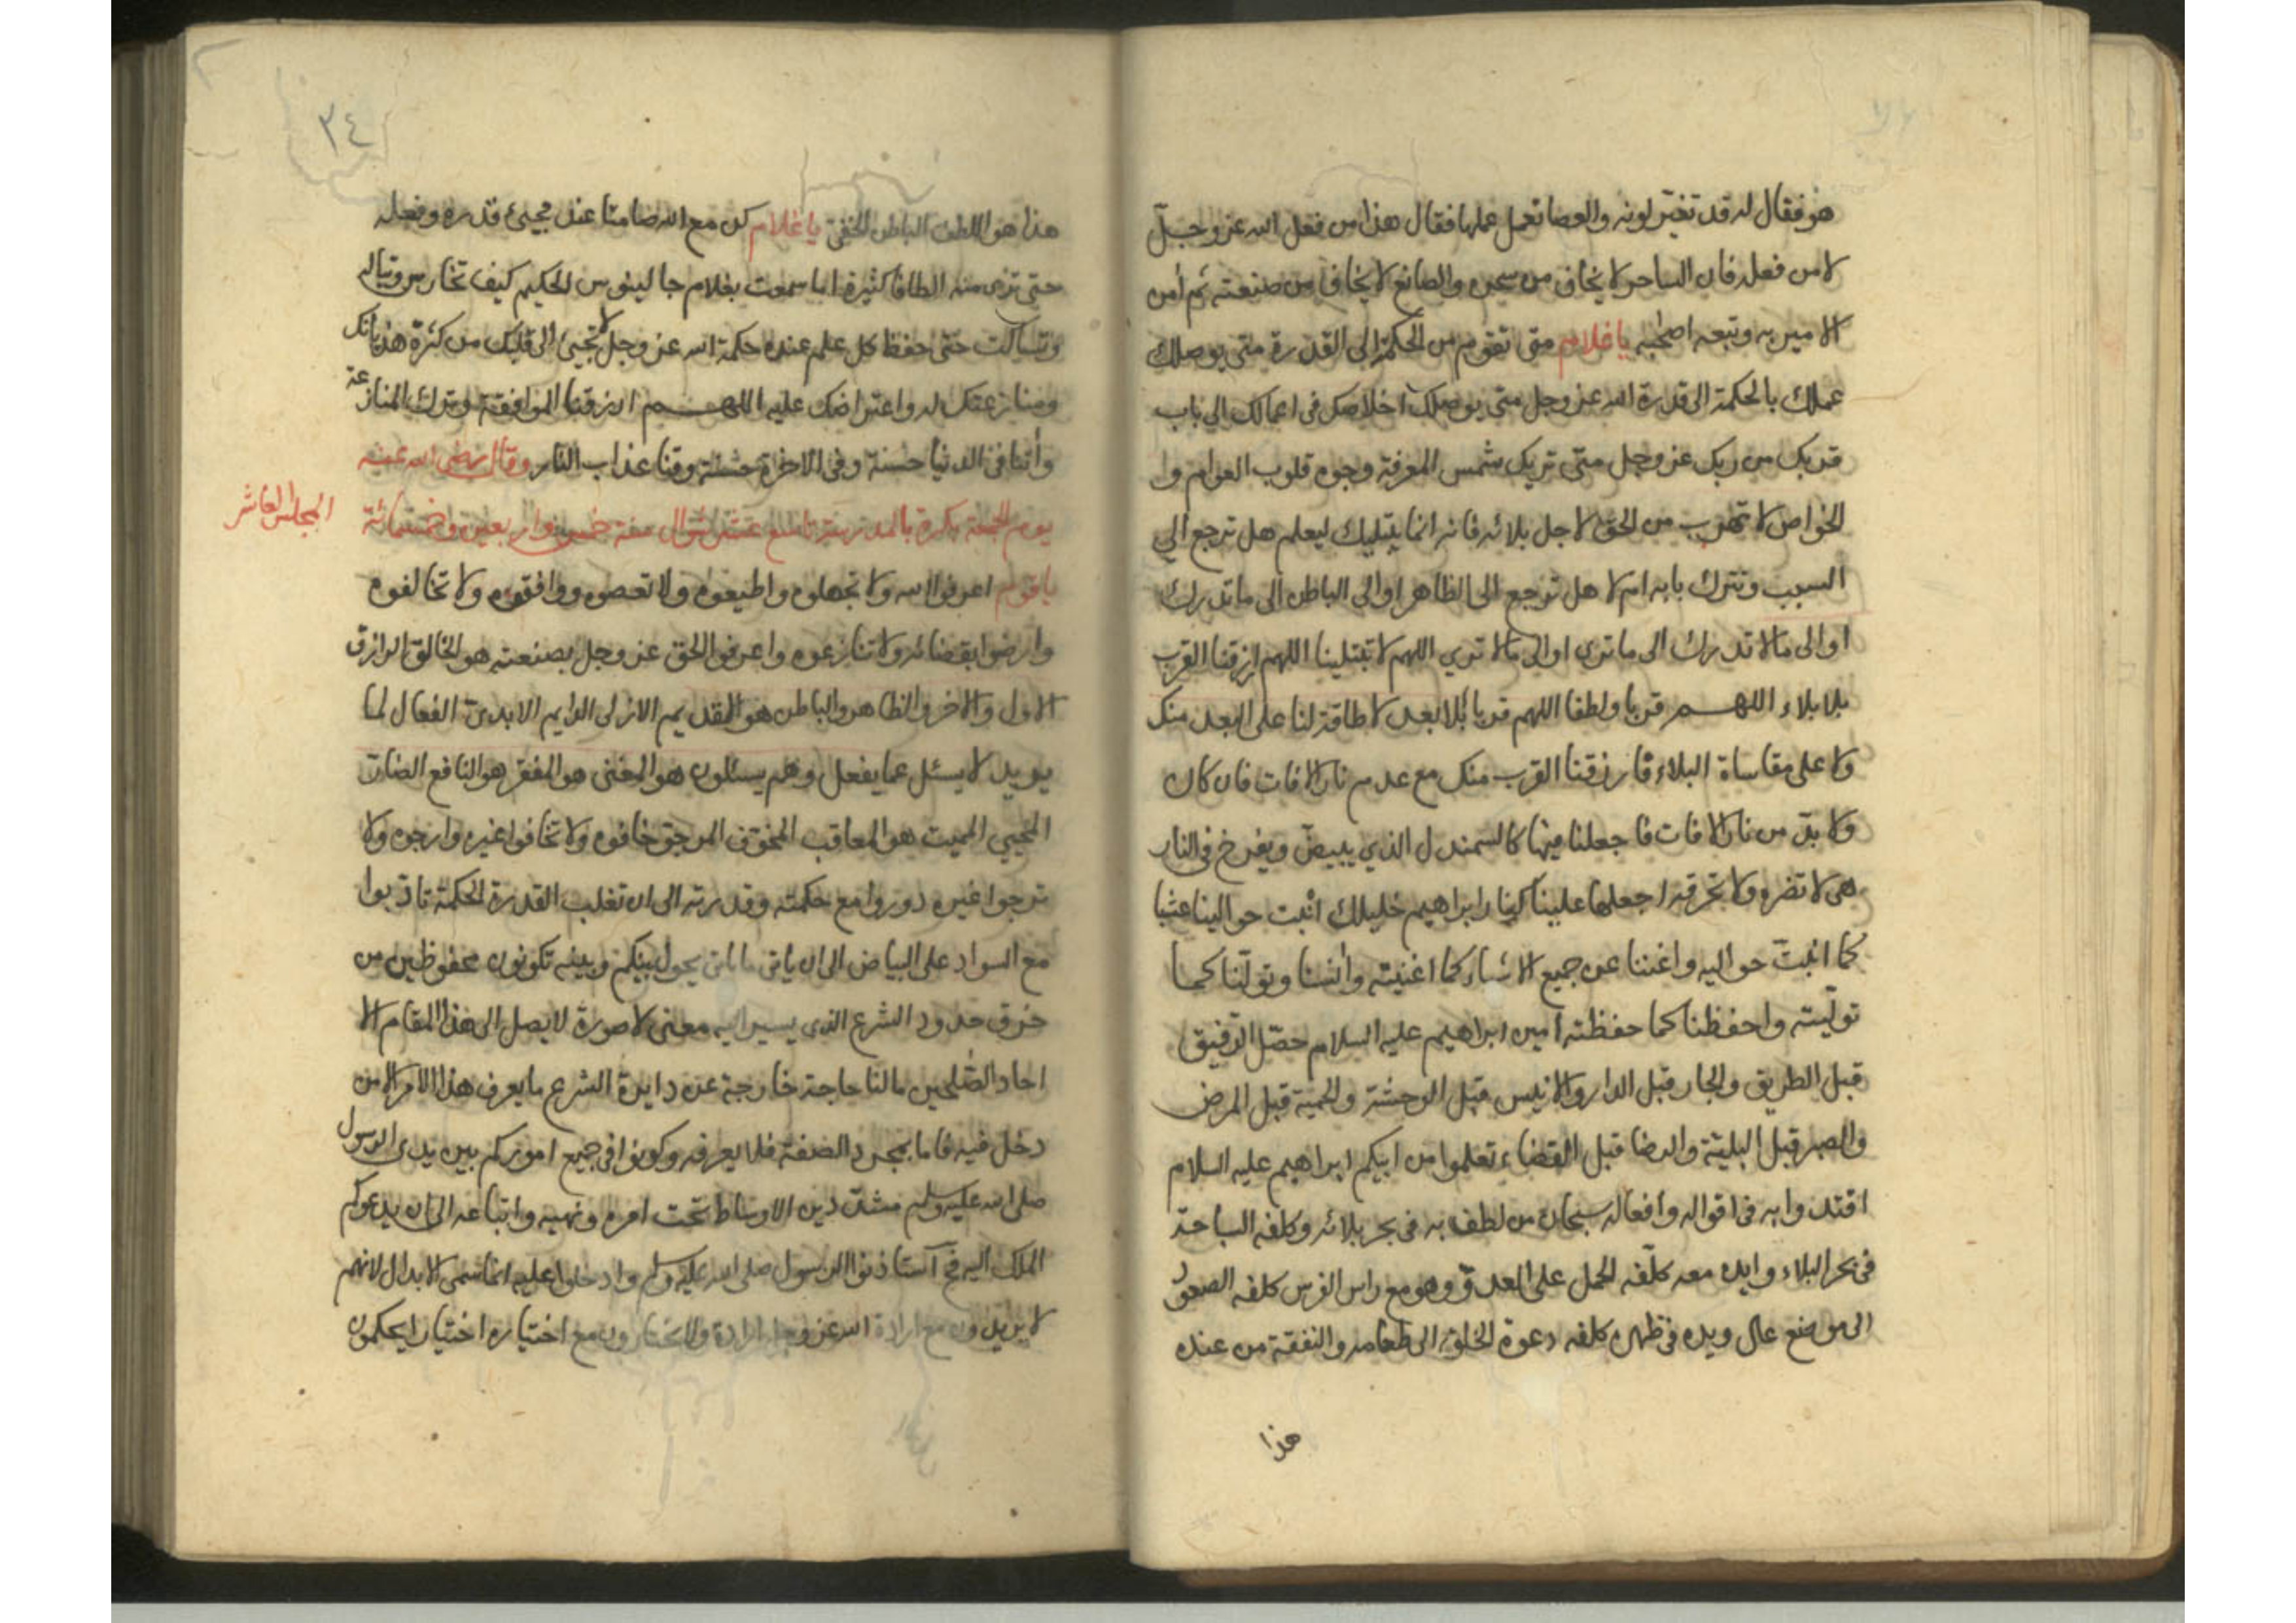 هو فقال له قد تغير لونه والعصا تعمل عملها فقال هذا من فعل الله عز وجل
لا من فعله فان الساحر لا يخاف من سحره والصانع لا يخاف من صنعته ثم أمن
الامير به وتبعه اصحبه يا غلام متى تقوم من الحكمة الى القدرة متى يوصلك
عملك بالحكمة الى قدرة الله عز وجل متى يوصلك اخلاصك فى اعمالك الي باب
قربك من ربك عز وجل متى تريك شمس المعرفة وجوه قلوب العوام وا
لخواص لا تهرب من الحق لاجل بلائه فانه انما يبتليك ليعلم هل ترجع الي
السبب وتترك بابه ام لا هل ترجع الى الظاهر اوالي الباطن الى ما تدرك
اوالى مالا تدرك الى ما ترى اوالى مالا تري اللهم لا تبتلينا اللهم ارزقنا القرب
بلا بلاء اللهم قربا ولطفا اللهم قربا بلا بعد لا طاقة لنا على البعد منك
ولا على مقاساة البلاء فارزقنا القرب منك مع عدم نار الافات فان كان
ولا بدّ من نار الافات فاجعلنا فيها كالسمندل الذي يبيض ويفرخ فى النار
هى لا تضره ولا تحرقه اجعلها علينا كنار ابراهيم خليلك انبت حوالينا عشبا
كما انبتّ حواليه واغننا عن جميع الاشياء كما اغنيته وأنسنا وتولّنا كما
تولّيته واحفظنا كما حفظته آمين ابراهيم عليه السلام حصّل الرفيق
قبل الطريق والجار قبل الدار والانيس قبل الوحشة والحمية قبل المرض
والصبر قبل البلية والرضا قبل القضاء تعلموا من ابيكم ابراهيم عليه السلام
اقتدوا به فى اقواله وافعاله سبحان من لطف به فى بحر بلائه وكلفه السباحة
فى بحر البلاء وايده معه كلّفه الحمل على العدوّ وهو مع راس الفرس كلفه الصعود
الى موضع عال ويده فى ظهره كلفه دعوة الخلق الى طعامه والنفقة من عنده
هذا
٣٤
هذا هو اللطف الباطن الخفى يا غلام كن مع الله صامتا عند مجيئ قدره وفعله
حتى ترى منه الطافا كثيرة اما سمعت بغلام جالينوس الحكيم كيف تخارس وتباله
وتساكت حتى حفظ كل علم عنده حكمة الله عز وجل لا تجيئ الى قلبك من كثرة هذيانك
ومنازعتك له واعتراضك عليه اللهم ارزقنا الموافقة وترك المنازعة
وأتنا فى الدنيا حسنة وفى الاخرة حسنة وقنا عذاب النار وقال رضى الله عنه
يوم الجمعة بكرة بالمدرسة تاسع عشر شوال سنة خمس واربعين وخمسمائة
المجلس العاشر
يا قوم اعرفوا الله ولا تجهلوه واطيعوه ولا تعصوه ووافقوه ولا تخالفوه
وارضوا بقضائه ولا تنازعوه واعرفوا الحق عز وجل بصنعته هو الخالق الرازق
الاول والاخر والظاهر والباطن هو القديم الازلى الدايم الابدىّ الفعال لما
يريد لا يسئل عما يفعل وهم يسئلون هو المغنى هو المفقر هو النافع الضار
المحيي المميت هو المعاقب المخوف المرجوّ خافوه ولا تخافوا غيره وارجوه ولا
ترجوا غيره دوروا مع حكمته وقدرته الى ان تغلب القدرة الحكمة تادبوا
مع السواد على البياض الى ان ياتى ما يحول بينكم وبينه تكونون محفوظين من
خرق حدود الشرع الذى يسير اليه معنى لا صورة لا يصل الى هذا المقام الا
احاد الصّلحين ما لنا حاجة خارجة عن دايرة الشرع ما يعرف هذا الامر الا من
دخل فيه فاما بمجرد الصفة فلا يعرفه وكونوا فى جميع اموركم بين يدى الرسول
صلى الله عليه وسلم مشدّدين الاوساط تحت امره ونهيه واتباعه الى ان يدعوكم
الملك اليه فح أستاذنوا الرسول صلى الله عليه وسلم وادخلوا عليه انما سمى الابدال لانهم
لا يريدون مع ارادة الله عز وجل ارادة ولا يختارون مع اختياره اختيارا يحكمون